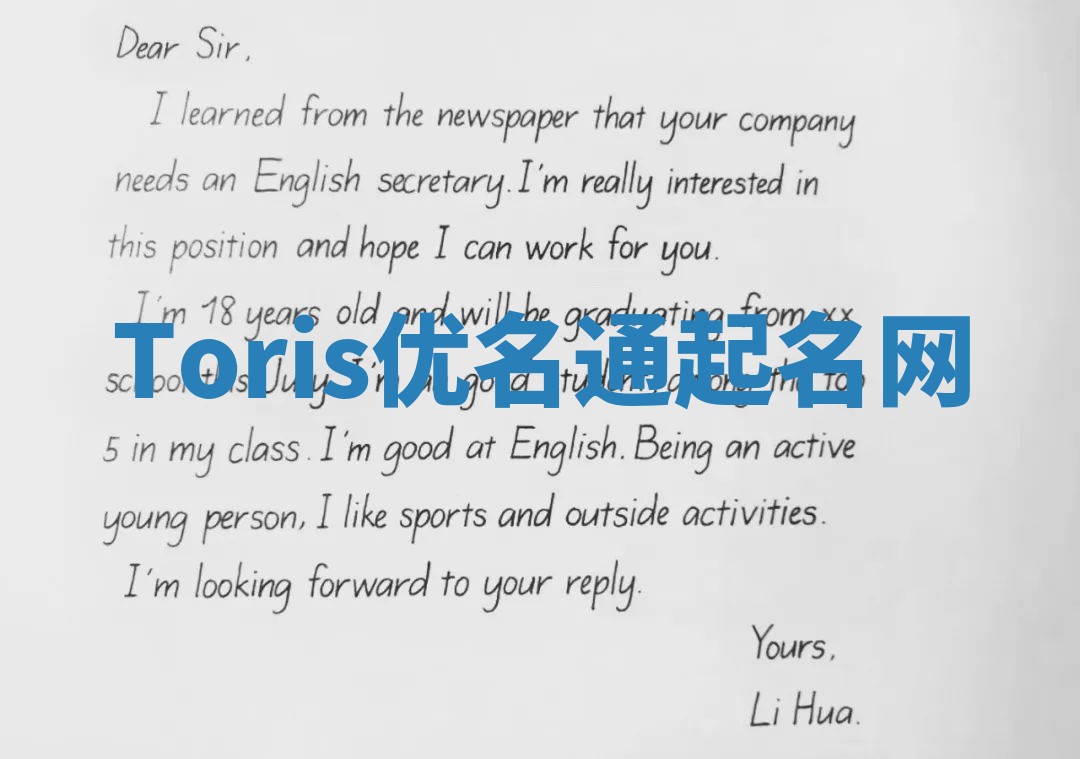 Dear Sir,
I learned from the newspaper that your company
needs an English secretary. I'm really interested in
this position and hope I can work for you.
I'm 18 years old and will be graduating from xx
Toris优名通起名网
school this July. I'm a good student, among the top
5 in my class. I'm good at English. Being an active
young person, I like sports and outside activities.
I'm looking forward to your reply.
Yours,
Li Hua.